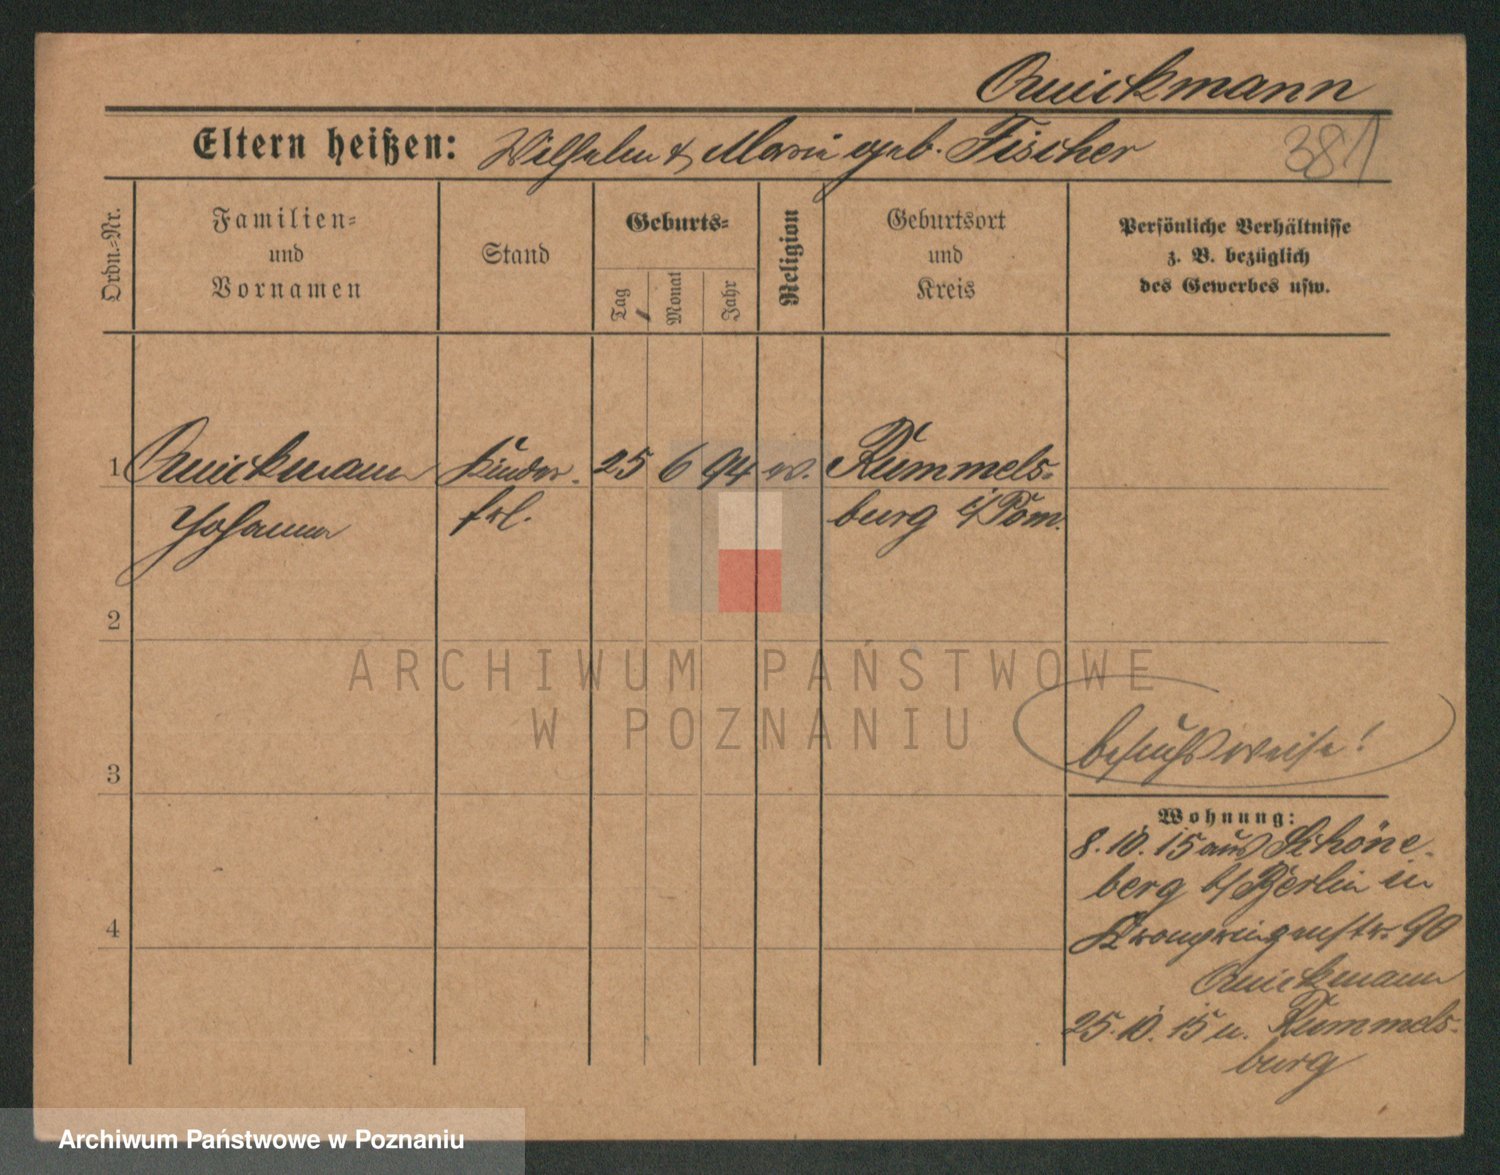 Quickmann
Eltern heißen: Wilhelm & Marie geb. Fischer
381
Ordn.-Nr.
Familien-
und
Vornamen
Stand
Geburts-
Tag
Monat
Jahr
Religion
Geburtsort
und
Kreis
Persönliche Verhältnisse
z. B. bezüglich
des Gewerbes usw.
1 Quickmann Kinder- 25 6 94 ev. Rummels-
Johanna frl. burg i/Pom.
2
ARCHIWUM PAŃSTWOWE
W POZNANIU
besuchsweise!
3
Wohnung:
8.10.15 aus Schöne-
berg b/Berlin in
4
Kronprinzenstr. 90
Quickmann
25.10.15 n. Rummels-
burg
Archiwum Państwowe w Poznaniu